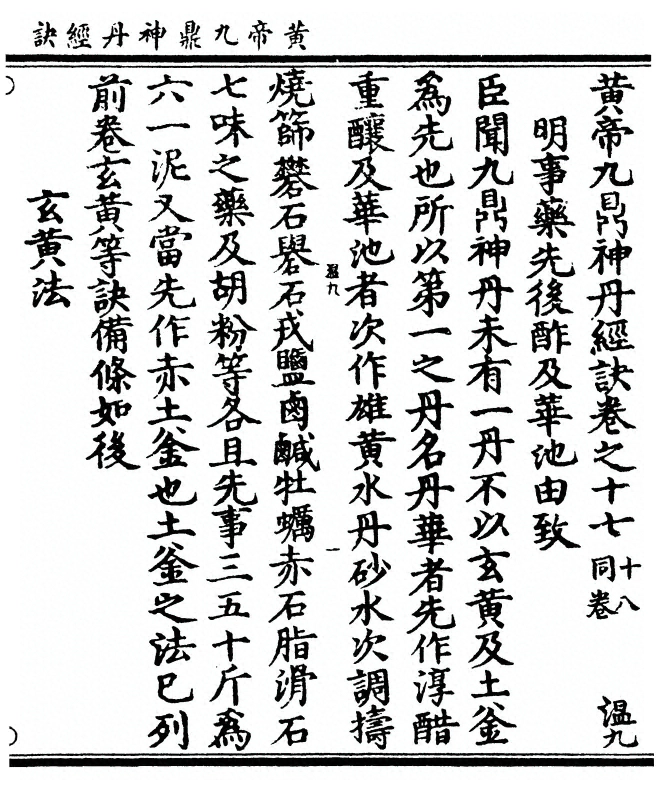 黃帝九鼎神丹經訣
黃帝九鼎神丹經訣卷之十七 十八同卷 溫九
明事藥先後酢及華池由致
臣聞九鼎神丹未有一丹不以玄黃及土釜
為先也所以第一之丹名丹華者先作淳醋
重釀及華池者次作雄黃水丹砂水次調擣
溫九 一
燒篩礬石礜石戎鹽鹵鹹牡蠣赤石脂滑石
七味之藥及胡粉等各且先事三五十斤為
六一泥又當先作赤土釜也土釜之法已列
前卷玄黃等訣備條如後
玄黃法